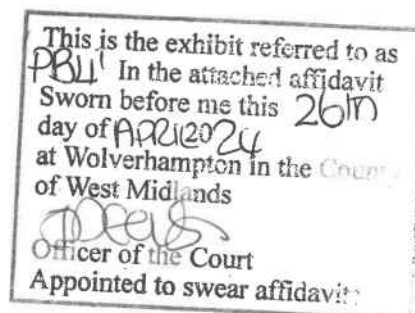 This is the exhibit referred to as
In the attached affidavit
Sworn before me this 26th
day of APRIL 2024
at Wolverhampton in the County
of West Midlands
Officer of the Court
Appointed to swear affidavits